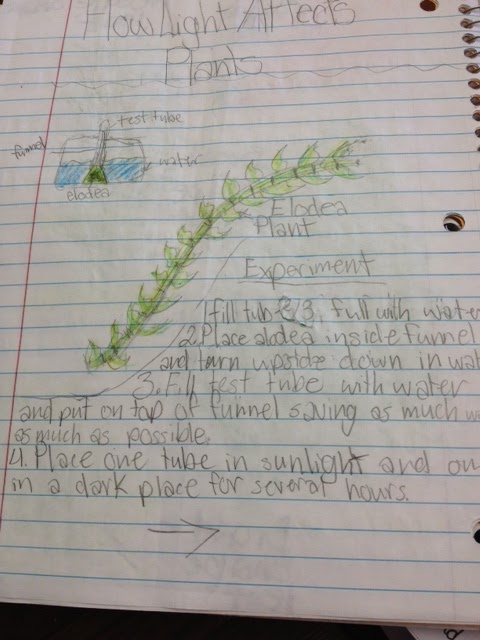 How Light Affects
Plants
test tube
funnel
water
elodea
Elodea
Plant
Experiment
1. fill tub 2/3 full with water
2. Place alodea inside funnel
and turn upside down in wat
3. Fill test tube with water
and put on top of funnel saving as much w
as much as possible.
4. Place one tube in sunlight and on
in a dark place for several hours.